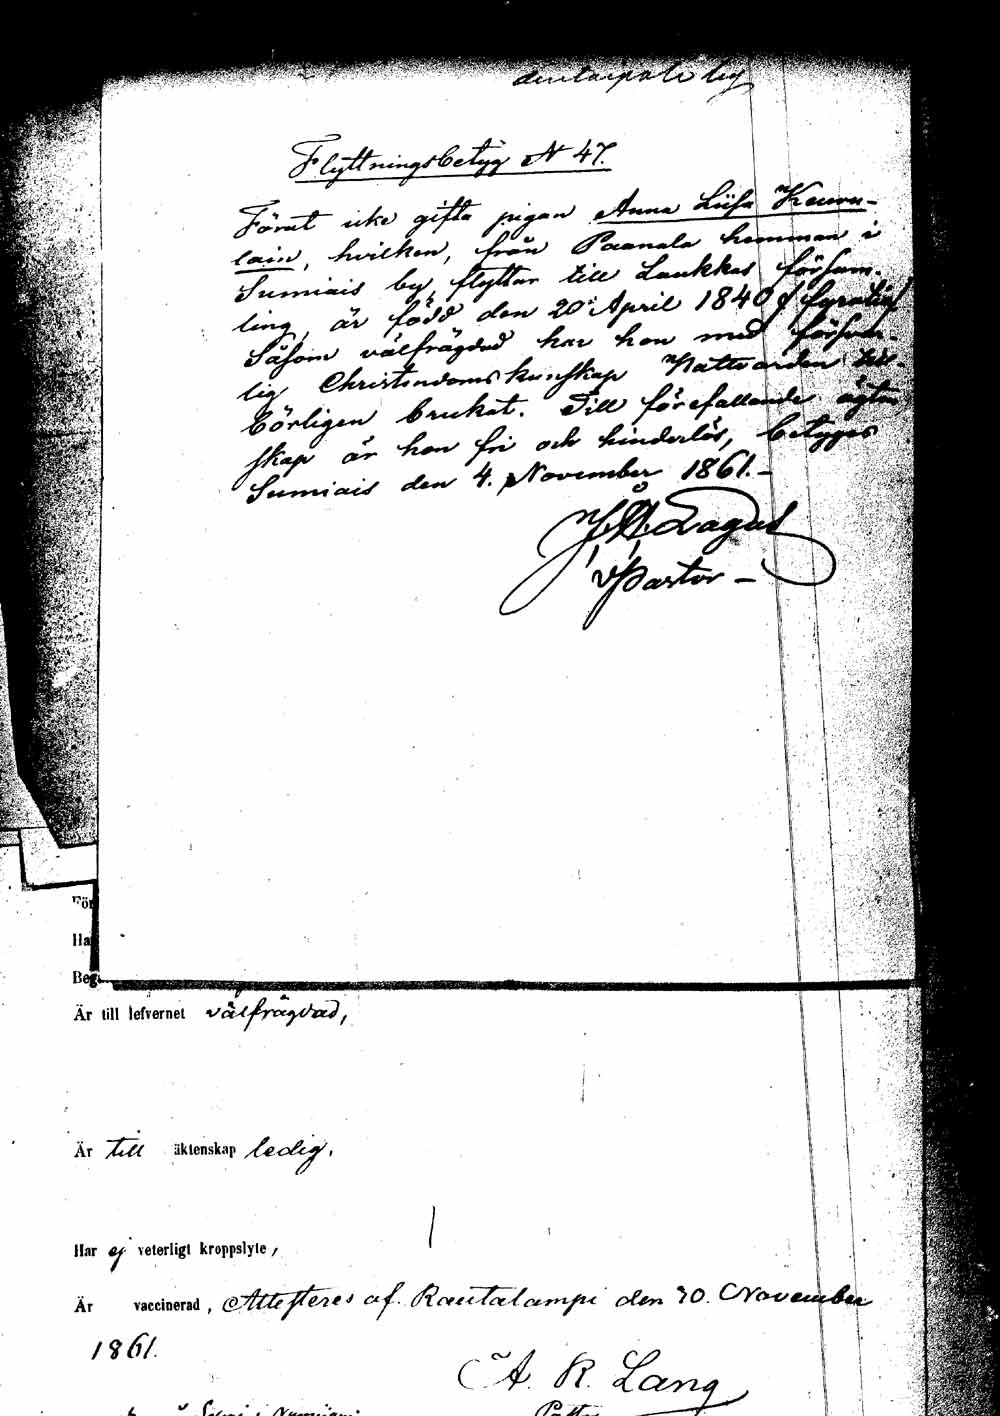 by
Flyttningsbetyg N 47.
Förut icke gifta pigan Anna Liisa Keuru-
lain, hvilken, från Paanala hemman i
Sumiais by, flyttar till Laukkas försam-
ling, är född den 20 April 1840 / fyratio/
Såsom välfrägdad har hon med försvar-
lig Christendomskunskap Nattvarden
börligen brukat. Till förefallande ägten
skap är hon fri och hinderlös, betygas
Sumiais den 4. November 1861.-
Lagus
vPastor -
För
Ha
Beg
Är till lefvernet välfrägdad,
Är till äktenskap ledig.
Har ej veterligt kroppslyte,
Är vaccinerad, Attesteres af. Rautalampi den 30. November
1861.
A. R. Lang